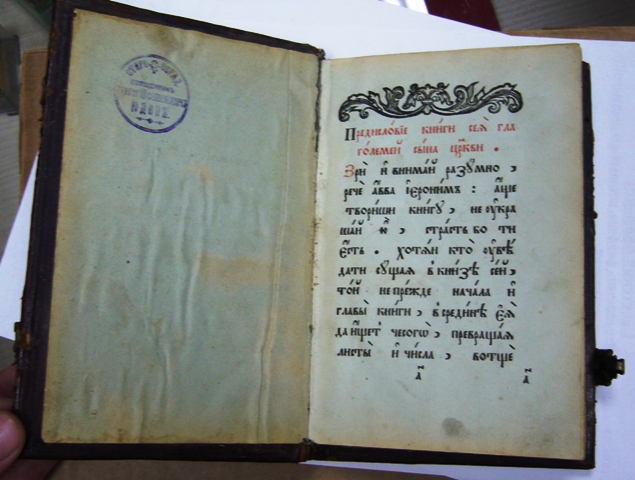 Предисло́вїе кни́ги сеѧ̀ гла
го́лемеи̏ сы́на цр҃кви .
Зрѝ и҆ внима́й ра́зꙋмно ,
речѐ а҆́вва і҆ерони́мъ : а҆́ще
твори́ши кни́гꙋ , не ᲂу҆кра
ша́й ю҆̀ , стра́сть бо ти
є҆́сть . хотѧ́й кто̀ ᲂу҆вѣ́
дати сꙋ́щаѧ в кни́зѣ се́й ,
то́й не пре́жде нача́ла и҆
главы̀ кни́ги , в среди́нѣ є҆ѧ̀
да и҆́щет чесогѡ̀ , превраща́ѧ
листы̀ и҆ чи́сла , вотщѐ
а҃
а҃